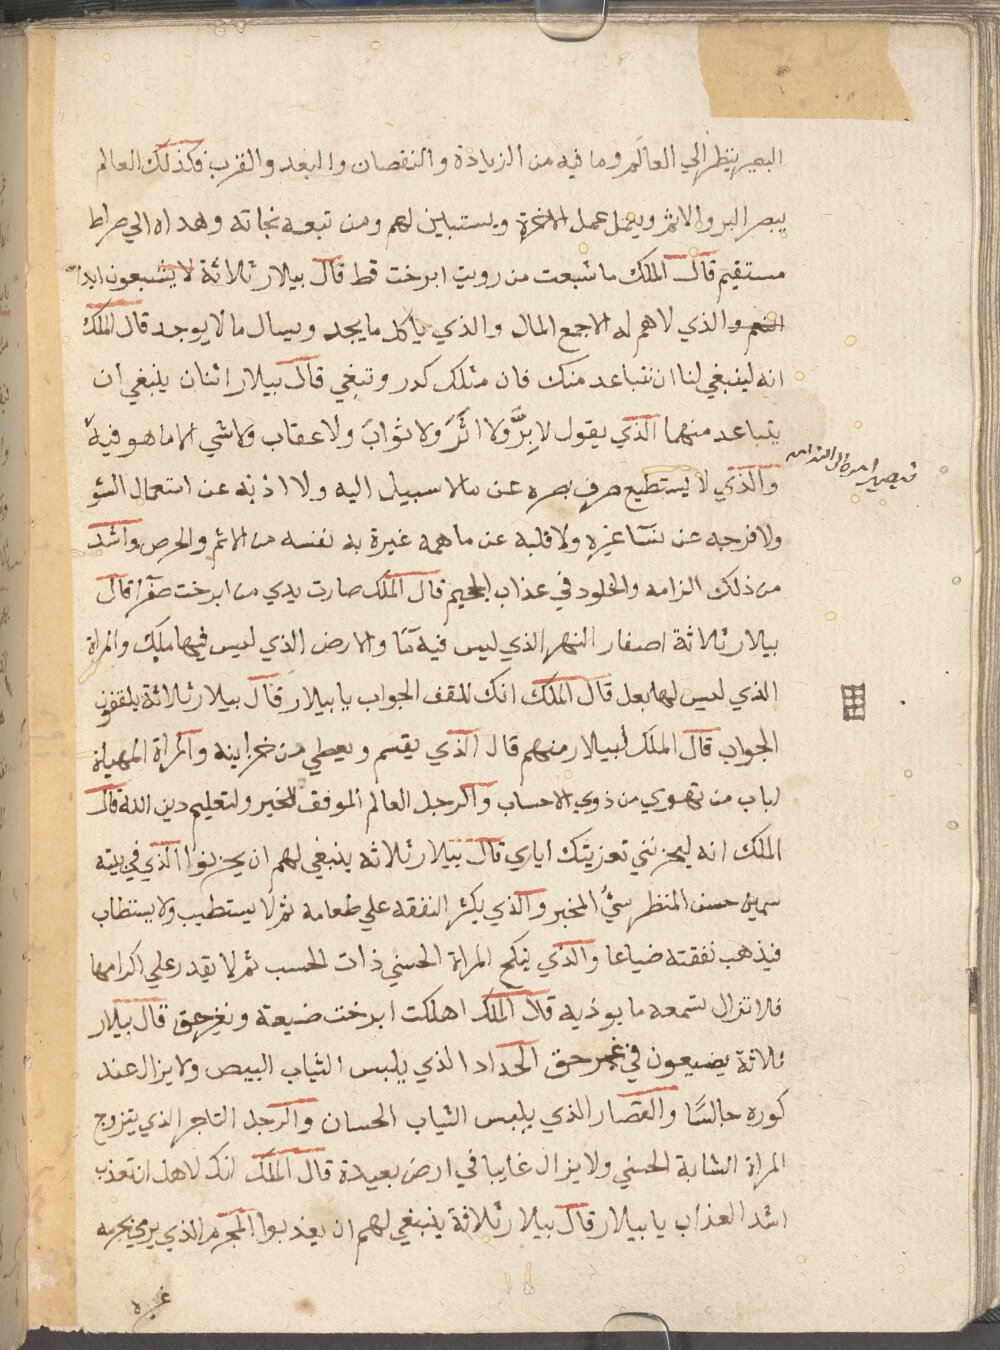 البصير ينظر الي العالم وما فيه من الزيادة والنقصان والبعد والقرب فكذلك العالم
يبصر البر والاثم ويعمل عمل الاخرة ويستبين لهم ومن تبعه نجاته وهداه الي صراط
مستقيم قال الملك ما شبعت من رويت ابرخت قط قال بيلار ثلاثة لا يشبعون ابدا
والذي لا هم له الا جمع المال والذي ياكل ما يجد ويسال ما لا يوجد قال الملك
انه لينبغي لنا ان نتباعد منك فان مثلك كدر وتبغي قال بيلار اثنان ينبغي ان
يتباعد منهما الذي يقول لا برَّ ولا اثم ولا ثواب ولا عقاب ولا شي الا ما هو فيه
والذي لا يستطيع صرف بصره عن ما لا سبيل اليه ولا اذنه عن استعمال السو
ولا فرجه عن نسا غيره ولا قلبه عن ما همه غيرة به نفسه من الاثم والحرص واشد
من ذلك الزامه والخلود في عذاب الجحيم قال الملك صارت يدي من ابرخت صفرا قال
بيلار ثلاثة اصفار النهر الذي ليس فيه مآ والارض الذي ليس فيها ملك والمراة
الذي ليس لها بعل قال الملك انك لملقف الجواب يا بيلار قال بيلار ثلاثة يلقفون
الجواب قال الملك لبيلار منهم قال الذي يقسم ويعطي من خزاينه والمراة المهياة
لباب من تهوي من ذوي الاحساب والرجل العالم الموفق للخير ولتعليم دين الله قال
الملك انه ليحزنني تعزيتك اياي قال بيلار ثلاثه ينبغي لهم ان يحزنوا الذي في بيته
سمين حسن المنظر سيُّ المخبر والذي يكثر النفقه علي طعامه ثم لا يستطيب ولا يستطاب
فيذهب نفقته ضياعا والذي ينكح المراة الحسني ذات الحسب ثم لا يقدر علي اكرامها
فلا تزال تسمعه ما يوذيه قال الملك اهلكت ابرخت ضيعة وبغير حق قال بيلار
ثلاثة يضيعون في غير حق الحداد الذي يلبس الثياب البيض ولا يزال عند
كوره جالسًا والقصار الذي يلبس الثياب الحسان والرجل التاجر الذي يتزوج
المراة الشابة الحسني ولا يزال غايبا في ارض بعيدة قال الملك انك لاهل ان تعذب
اشد العذاب يا بيلار قال بيلار ثلاثة ينبغي لهم ان يعذبوا المجرم الذي يرمي بجرمه
غيره